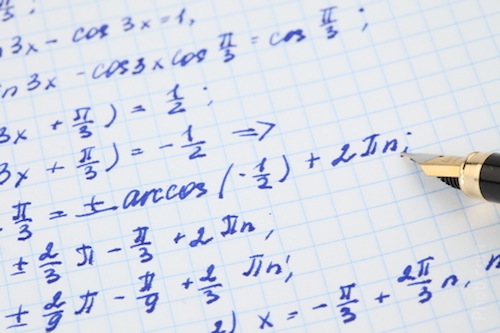 π/3 ;
n 3x - cos 3x = 1,
n 3x - cos 3x cos π/3 = cos π/3 ;
3x + π/3 ) = 1/2 ;
3x + π/3 ) = - 1/2 =>
π/3 = ± arccos (- 1/2 ) + 2 πn ;
± 2/3 π - π/3 + 2 πn ,
± 2/9 π - π/9 + 2/3 πn ;
2) x = - π/3 + 2π/3 n, n